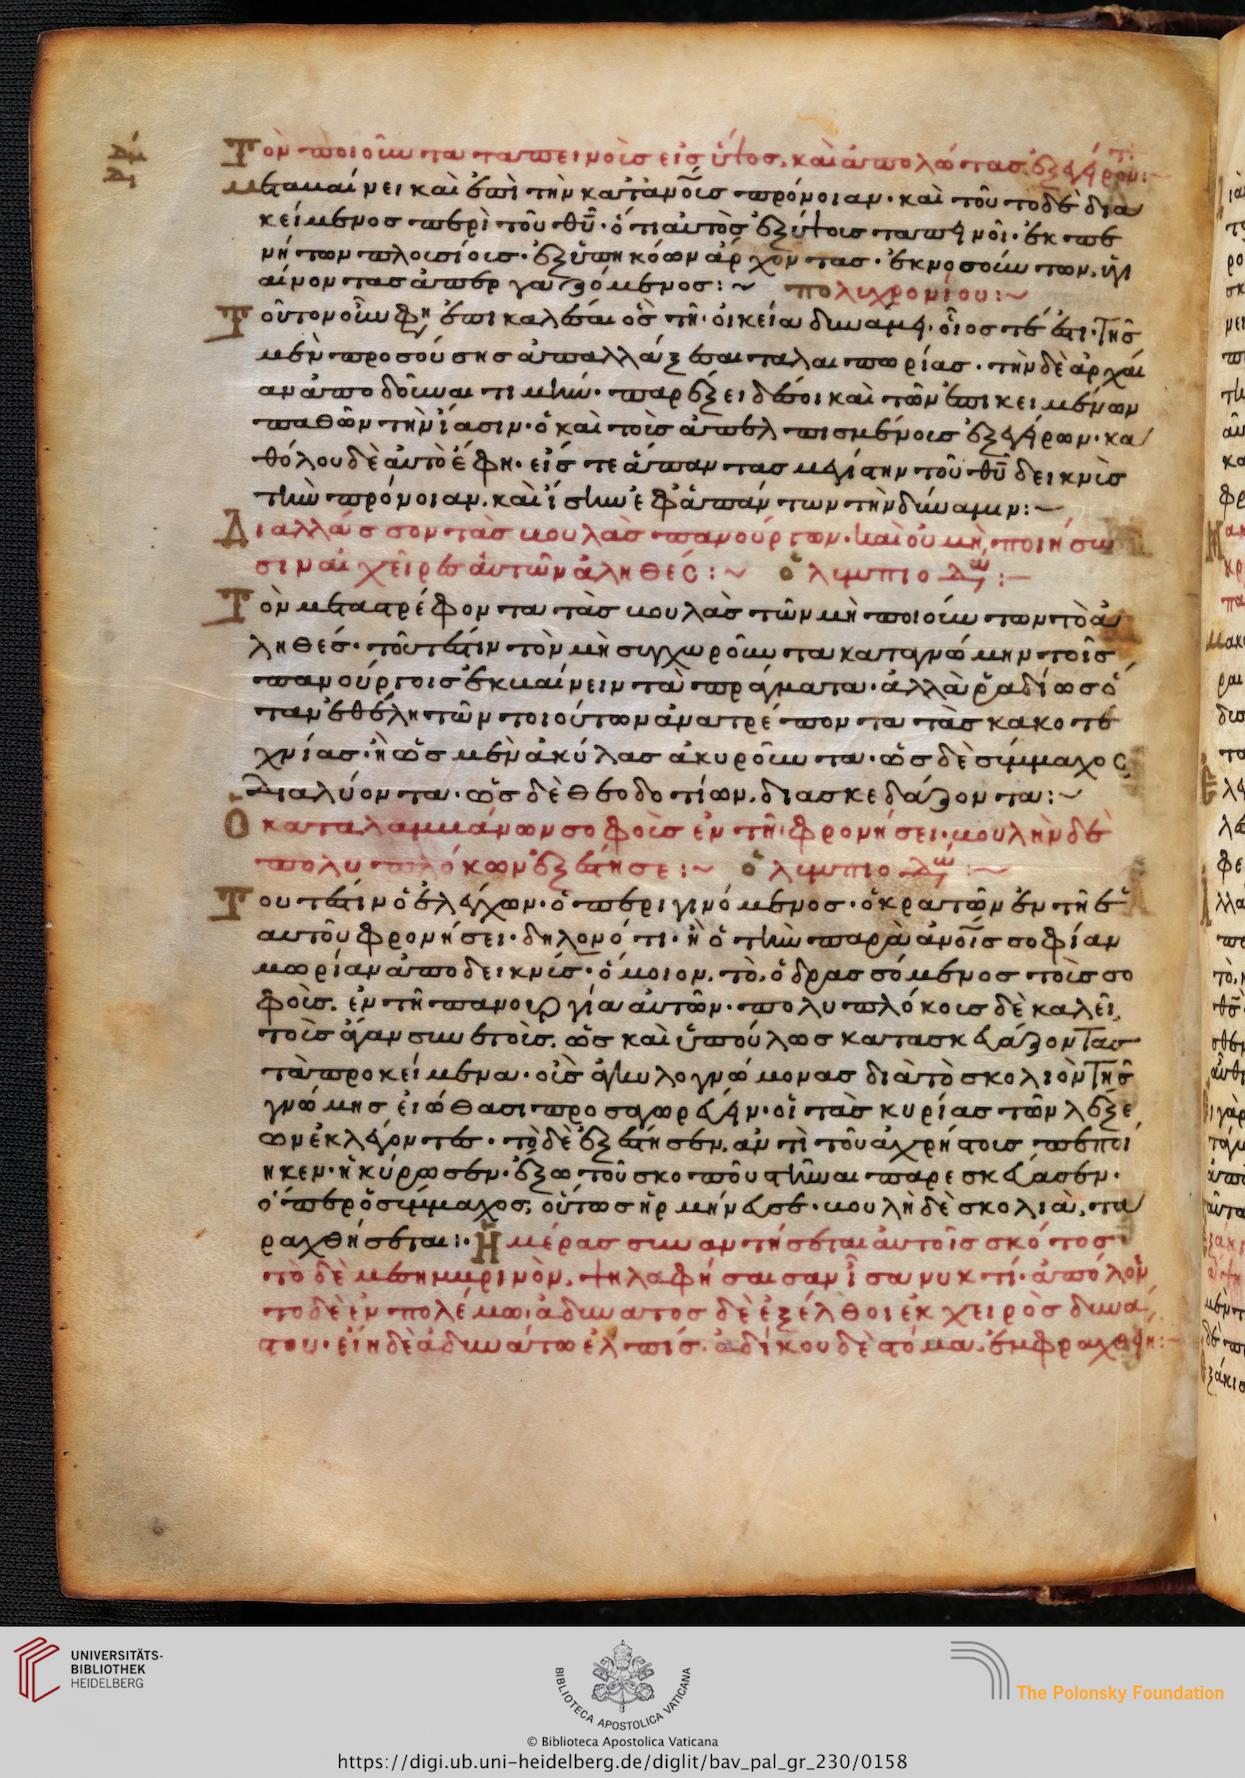 Τὸν ποιοῦντα ταπεινοὺς εἰς ὕψος, καὶ ἀπολωλότας ἐξεγείροντα:
μεταβαίνει καὶ ἐπὶ τὴν κατ' ἀνους πρόνοιαν· καὶ τοῦ τοδε δια
κείμενος περὶ τοῦ θῦ· ὅτι αὐτὸς ἐξυψοῖς ταπεινοί· ἐκ πε
νήτων πλουσίους· ἐξ ὑπηκόων ἄρχοντας· ἐκ νοσούντων, ὑγι
αίνοντας ἀπεργαζόμενος:~ πολυχρονίου:~
Τοῦτον οὖν φη ἐπικαλέσαι ὃς τῆ οἰκεία δυνάμει· οἷός τέ ἐστι τῆς
μὲν προσούσης ἀπαλλάξαι ταλαιπωρίας· τὴν δὲ ἀρχαί
αν ἀποδοῦναι τιμήν· παρέξει δέ σοι καὶ τῶν ἐπικειμένων
παθῶν τὴν ἴασιν· ὁ καὶ τοὺς ἀπελπισμένους ἐξεγείρων· κα
θόλου δὲ αὐτὸ ἔφη· εἴς τε ἅπαντας μεγίστην τοῦ θῦ δεικνὺς
τὴν πρόνοιαν, καὶ ἴσην ἐφ' ἁπάντων τὴν δύναμιν:~
Διαλλάσσοντα βουλὰς πανούργων· καὶ οὐ μὴ ποιήσω
σιν αἱ χεῖρες αὐτῶν ἀληθές:~ ὀλυμπιοδώ:~
Τὸν μεταστρέφοντα τὰς βουλὰς τῶν μὴ ποιούντων τὸ ἀ
ληθές· τουτέστιν τὸν μὴ συγχωροῦντα κατα γνώμην τοῖς
πανούργοις ἐκβαίνειν τὰ πράγματα· ἀλλὰ ῥαδίως ὅ
ταν ἐθέλη τῶν τοιούτων ἀνατρέποντα τὰς κακοτε
χνίας· ἢ ὡς μὲν ἀκύλας ἀκυροῦντα· ὡς δὲ σύμμαχος
διαλύοντα· ὡς δὲ θεοδοτίων, διασκεδάζοντα:~
Ὁ καταλαμβάνων σοφοὺς ἐν τῆ φρονήσει· βουλὴν δὲ
πολυπλόκων ἐξέστησε:~ ὀλυμπιοδώ:~
Τουτέστιν ὁ ἐλέγχων· ὁ περιγινόμενος· ὁ κρατῶν ἐν τῆ ἑ
αυτοῦ φρονήσει· δηλονότι· ἢ ὁ τὴν παρὰ ἀνοις σοφίαν
μωρίαν ἀποδεικνύς· ὅμοιον, τὸ, ὁ δρασσόμενος τοὺς σο
φοὺς, ἐν τῆ πανουργία αὐτῶν· πολυπλόκους δὲ καλεῖ,
τοὺς ἄγαν συνετοὺς, ὡς καὶ ὑπούλως κατασκευάζοντας
τὰ προκείμενα· οὓς ἀγκυλογνώμονας διὰ τὸ σκολιὸν τῆς
γνώμης εἰώθασι προσαγορεύειν· οἱ τὰς κυρίας τῶν λέξε
ων ἐκλέγοντες· τὸ δὲ ἐξέστησεν, ἀντὶ τοῦ ἀχρήστους πεποί
ηκεν· ἢ κύρωσεν· ἔξω τοῦ σκοποῦ στῆναι παρεσκεύασεν·
ὅπερ ὁ σύμμαχος, οὕτως ἡρμήνευσε· βουλὴ δὲ σκολιὰ, τα
ραχθήσεται:· Ἡμέρας συναντήσεται αὐτοῖς σκότος·
τὸ δὲ μεσημβρινὸν, ψηλαφήσαισαν ἴσα νυκτί· ἀπόλοιν
το δὲ ἐν πολέμω· ἀδύνατος δὲ ἐξέλθοι ἐκ χειρὸς δυνά
του· εἴη δὲ ἀδυνάτω ἐλπίς· ἀδίκου δὲ στόμα, ἐμφραχθείη:~
UNIVERSITÄTS-
BIBLIOTHEK
HEIDELBERG
BIBLIOTECA APOSTOLICA VATICANA
The Polonsky Foundation
© Biblioteca Apostolica Vaticana
https://digi.ub.uni-heidelberg.de/diglit/bav_pal_gr_230/0158